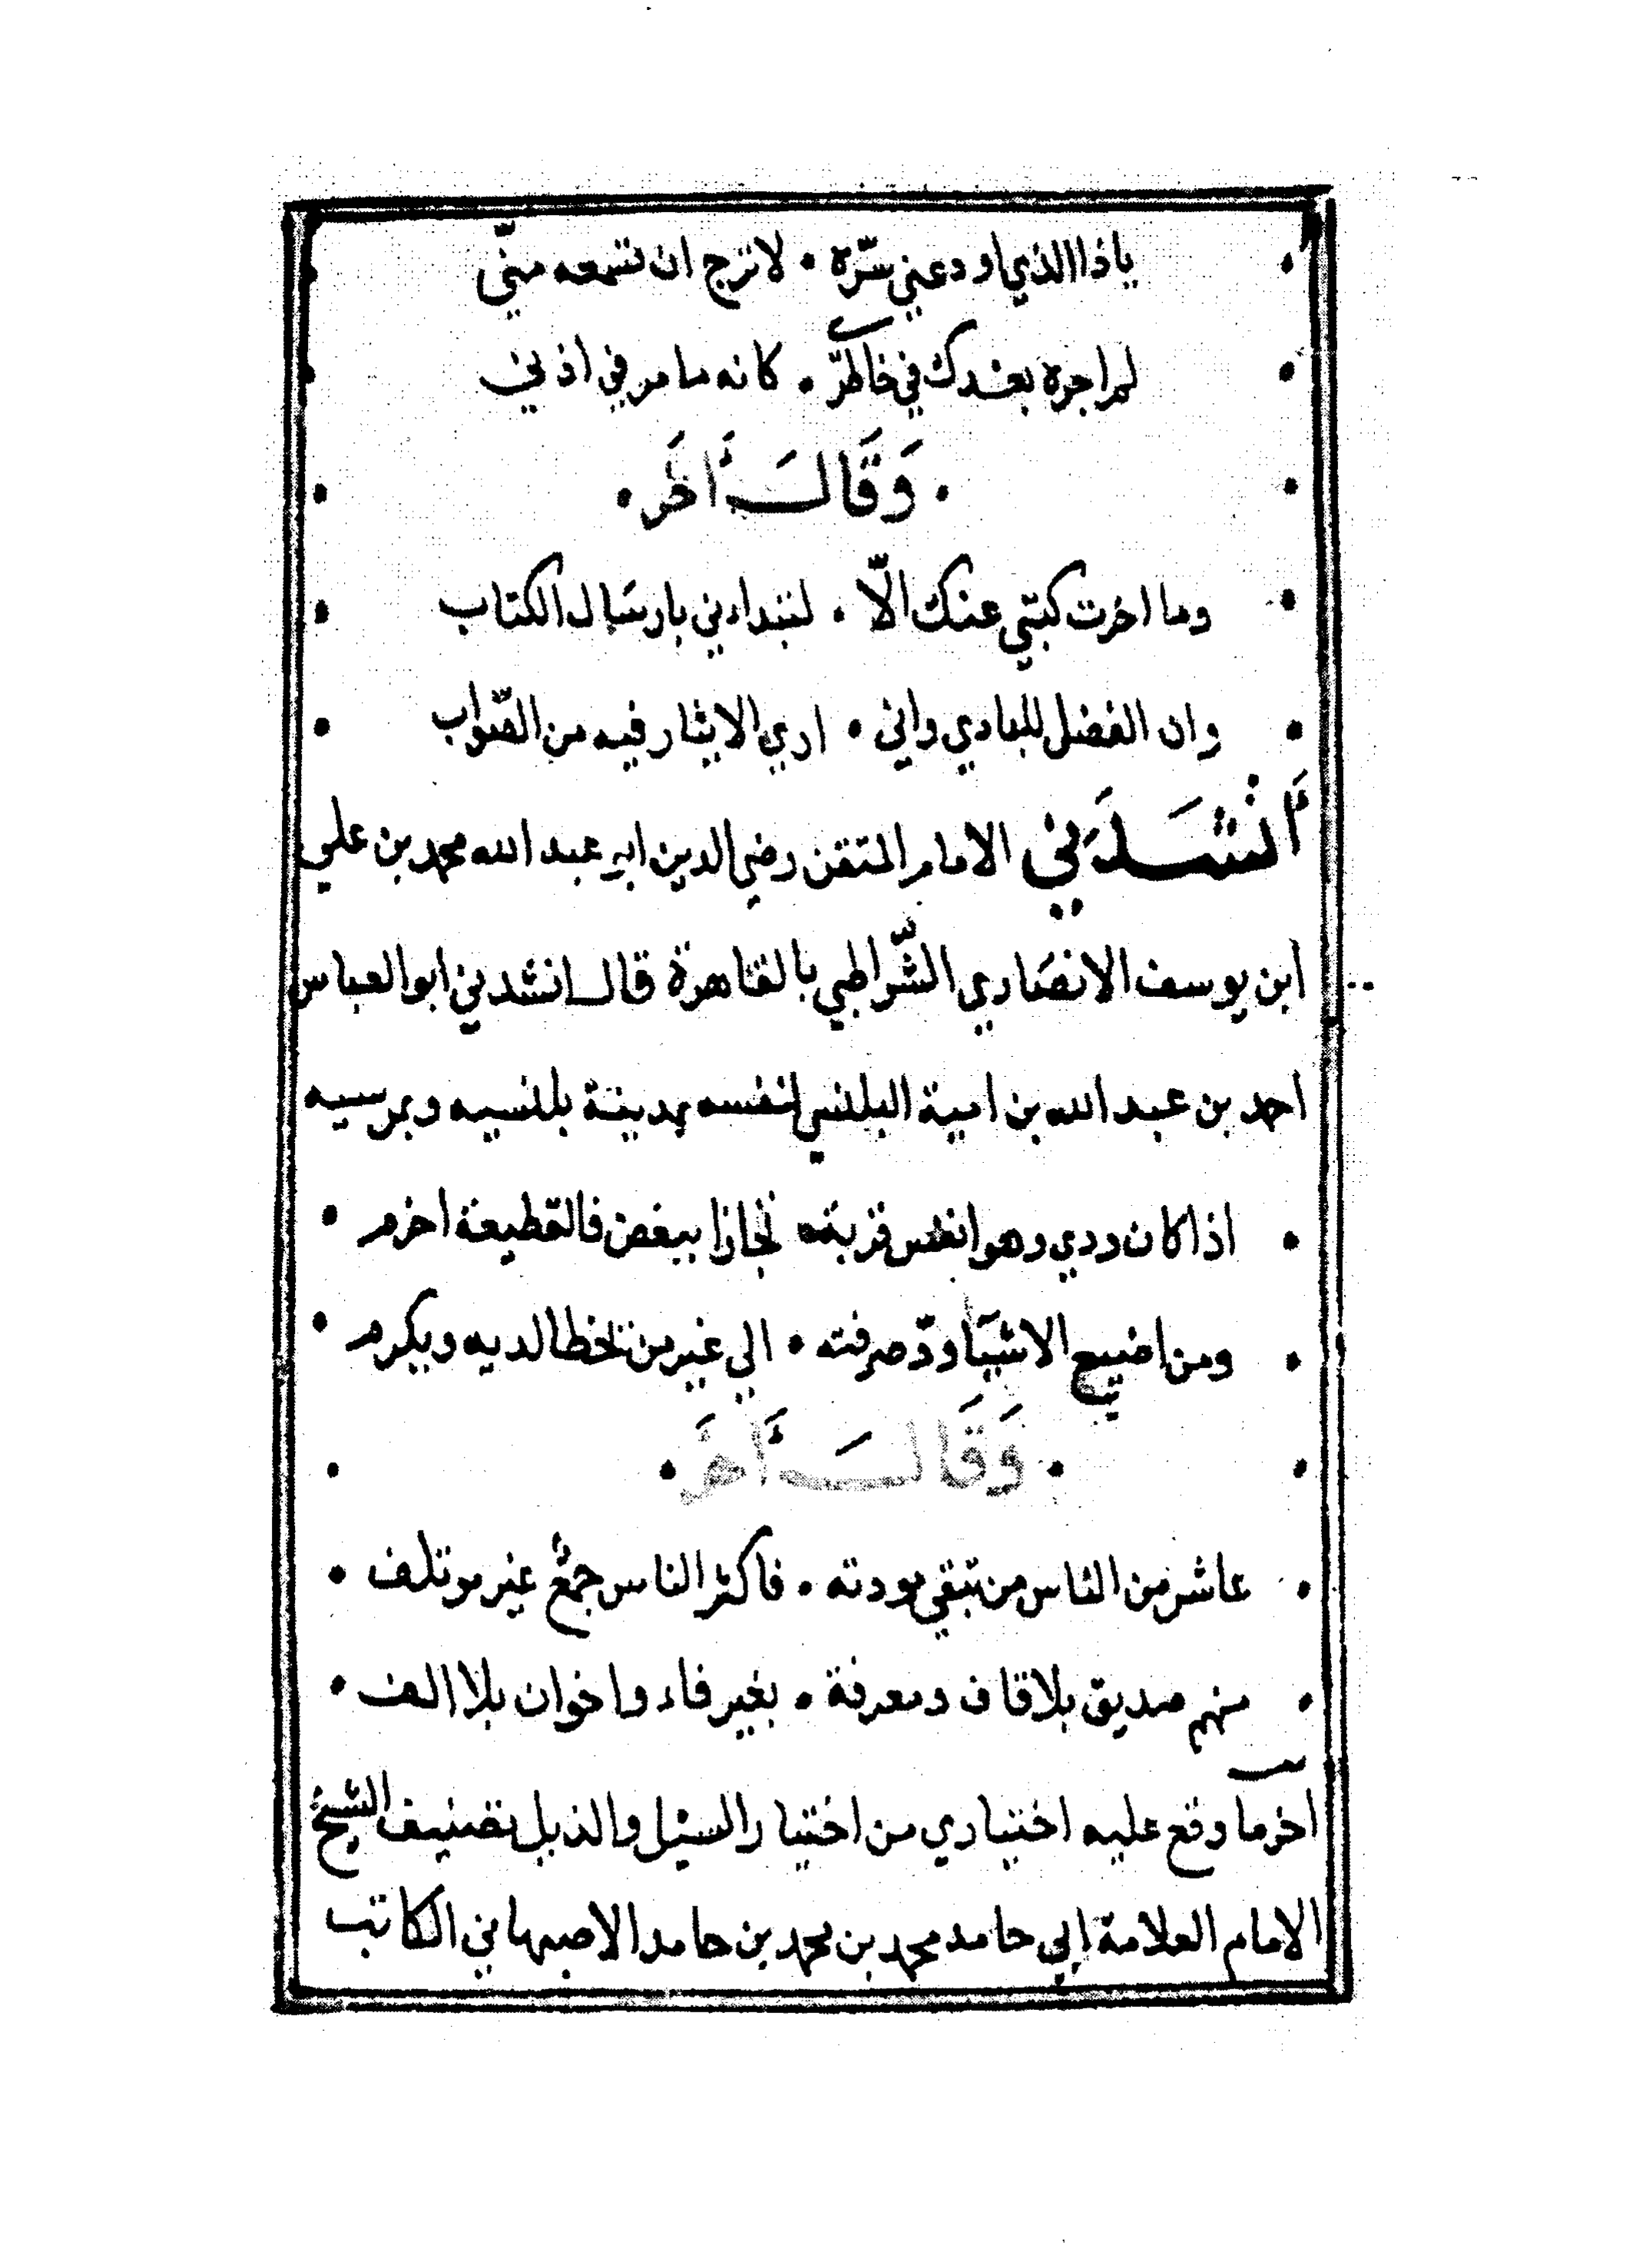 ياذا الذي اودعني سرّه • لا ترج ان تسمعه منّي
لم اجره بعدك في خاطرّي • كانه ما مر في اذني
• وَقَالَ أَخَر •
وما اخرت كتبي عنك الّا • لتبداني بارسَال الكتاب
وان الفضل للبادي واني • اري الايثار فيه من الصّواب
أَنْشَدَني الامام المتقن رضي الدين ابي عبد الله محمد بن علي
ابن يوسف الانصَاري الشّراطبي بالقاهرة قال انشدني ابو العباس
احمد بن عبد الله بن امية البلنسي لنفسه بمدينة بلنسيه وبمرسيه
• اذا كان ودي وهو انفس قربة نجازا ببغض فالقطيعة احزم •
• ومن اضيع الاشيَاودّ صرفته • الي غير من تخطا لديه ويكرم •
• وَقَالَ أَخَر •
• عاشر من الناس من تبقي مودته • فاكثر الناس جمعٌ غير موتلف •
• منهم صديق بلا قاف ومعرفة • بغير فاء واخوان بلا الف •
اخر ما وقع عليه اختياري من اختيار السيل والذيل تصنيف الشيخ
الامام العلامة ابي حامد محمد بن محمد بن حامد الاصبهاني الكاتب